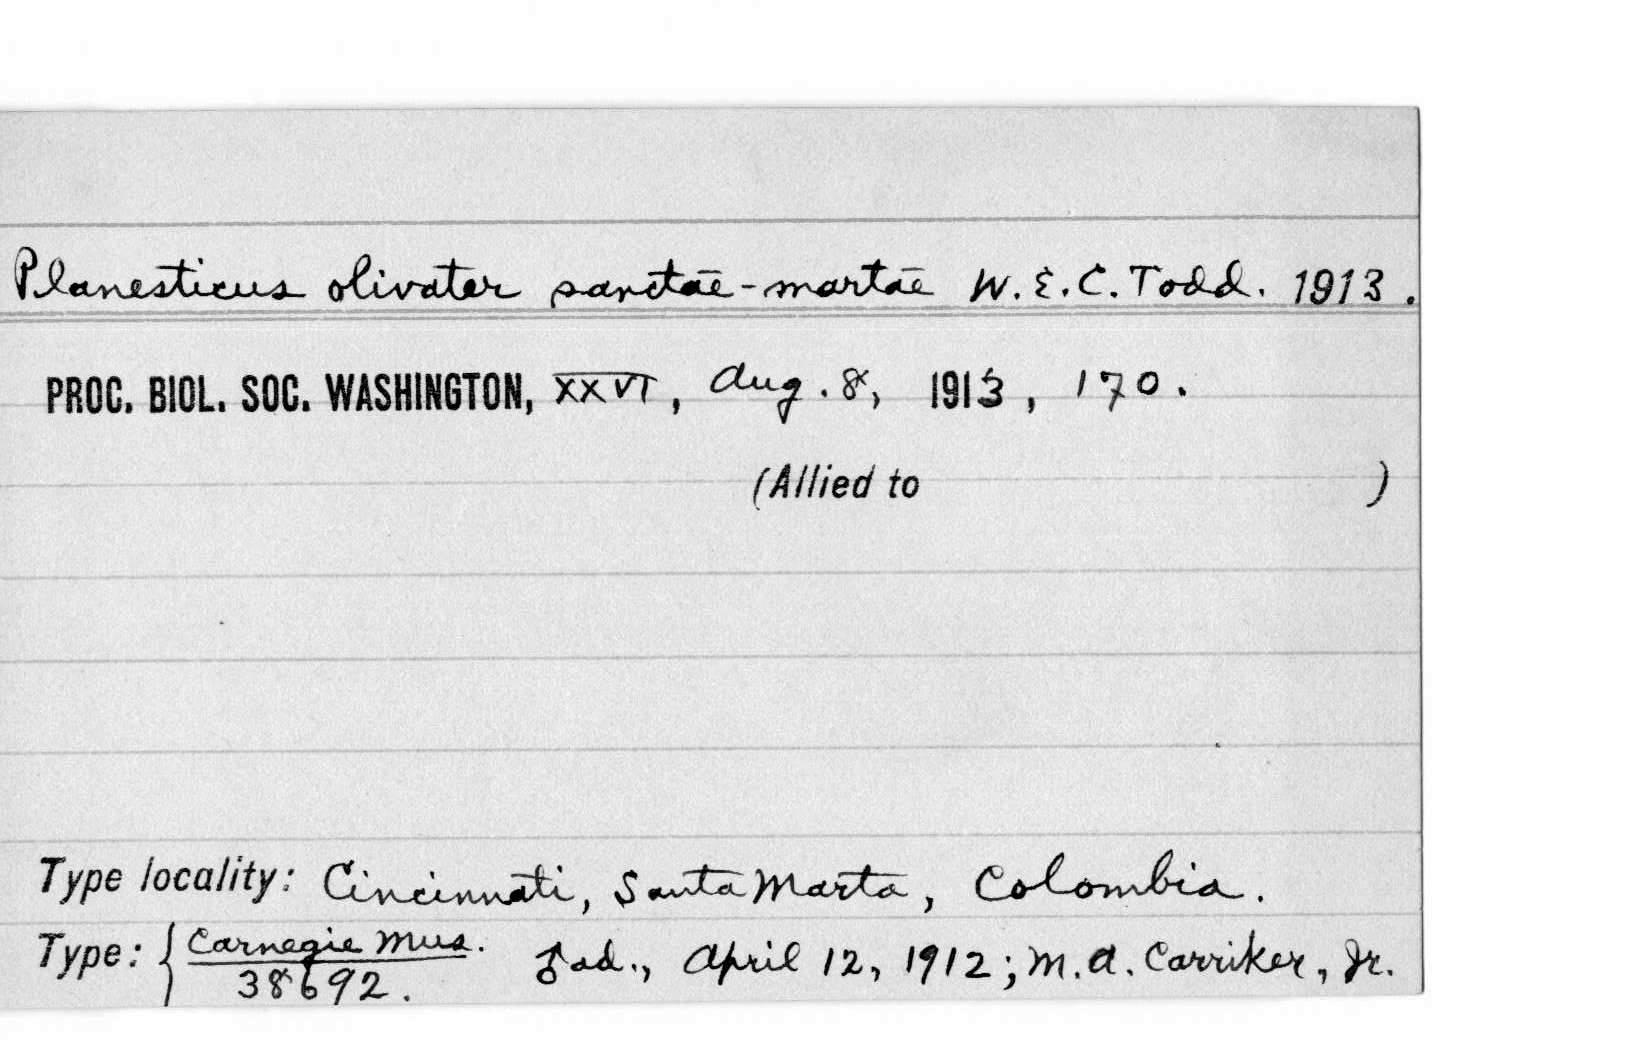 Planesticus olivater sanctae-martae W.E.C. Todd. 1913.
PROC. BIOL. SOC. WASHINGTON, XXVI, Aug. 8, 1913, 170.
(Allied to )
Type locality: Cincinnati, Santa Marta, Colombia.
Type: { Carnegie Mus. ♂ ad., April 12, 1912; M.A. Carriker, Jr.
38692.